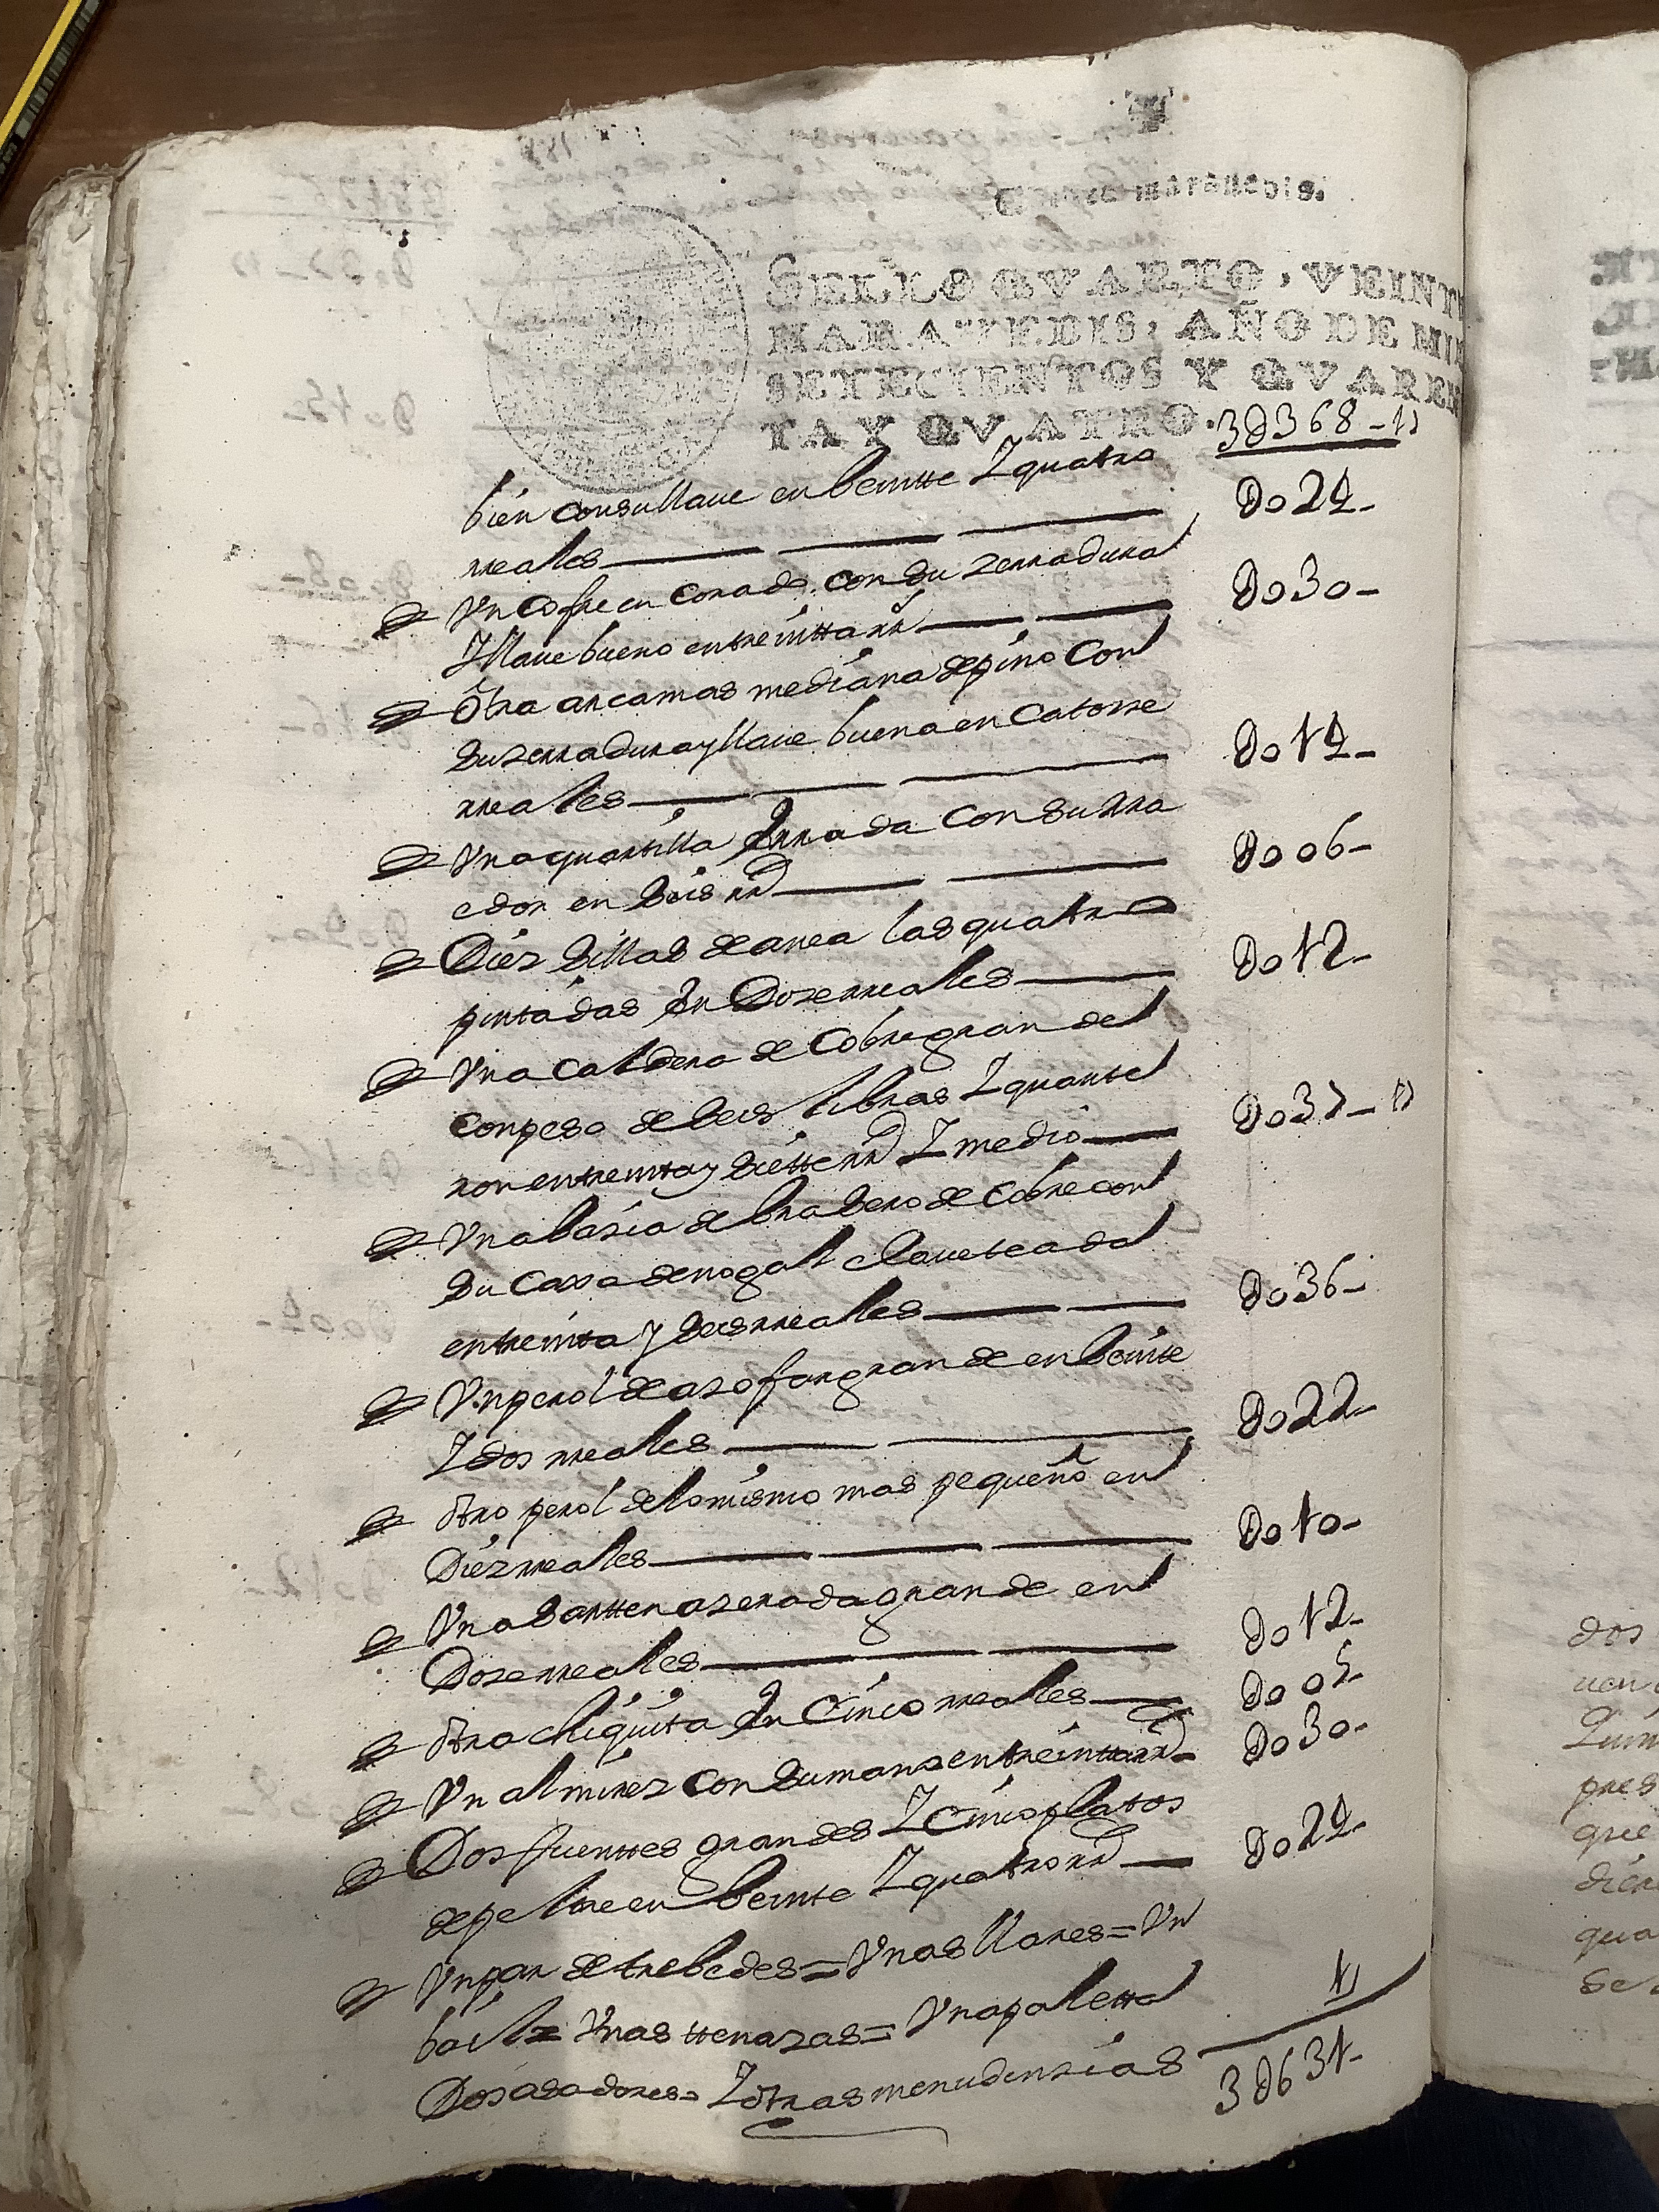 maravedis.
SELLO QVARTO, VEINT
MARAVEDIS, AÑO DE MIL
SETECIENTOS Y QVAREN
TA Y QVATRO.
3U368-17
bien con su llaue en beintte y quatro
rreales U024-
Vn cofre encorado con su zerradura
y llaue bueno en treintta rrs U030-
Otra arca mas mediana de pino con
su zerradura y llaue buena en catorze
rreales U014-
Vna quartilla errada con su rra
edor en seis rrs U006-
Diez sillas de anea las quatro
pintadas en Doze rreales U012-
Vna caldera de cobre grande
con peso de seis libras y quarte
ron en treinta y siette rrs y medio U037-17
Vna basia de brasero de cobre con
su caxa de nogal claueteada
en treinta y seis rreales U036-
Vn perol de azofar grande en beinte
y dos rreales U022-
otro perol de lo mismo mas pequeño en
Diez rreales U010-
Vna sartten azerada grande en
Doze rreales U012-
otra chiquita en Cinco rreales U005-
Vn almirez con su mano en treintta rrs U030-
Dos fuenttes grandes y cinco platos
de peltre en beinte y quatro rrs U024-
Vn par de trebedes = Vnas llares = Vn
badil = Vnas ttenazas = Vna paletta
Dos asadores = y otras menudenzias
3U631-
dos
que
Se